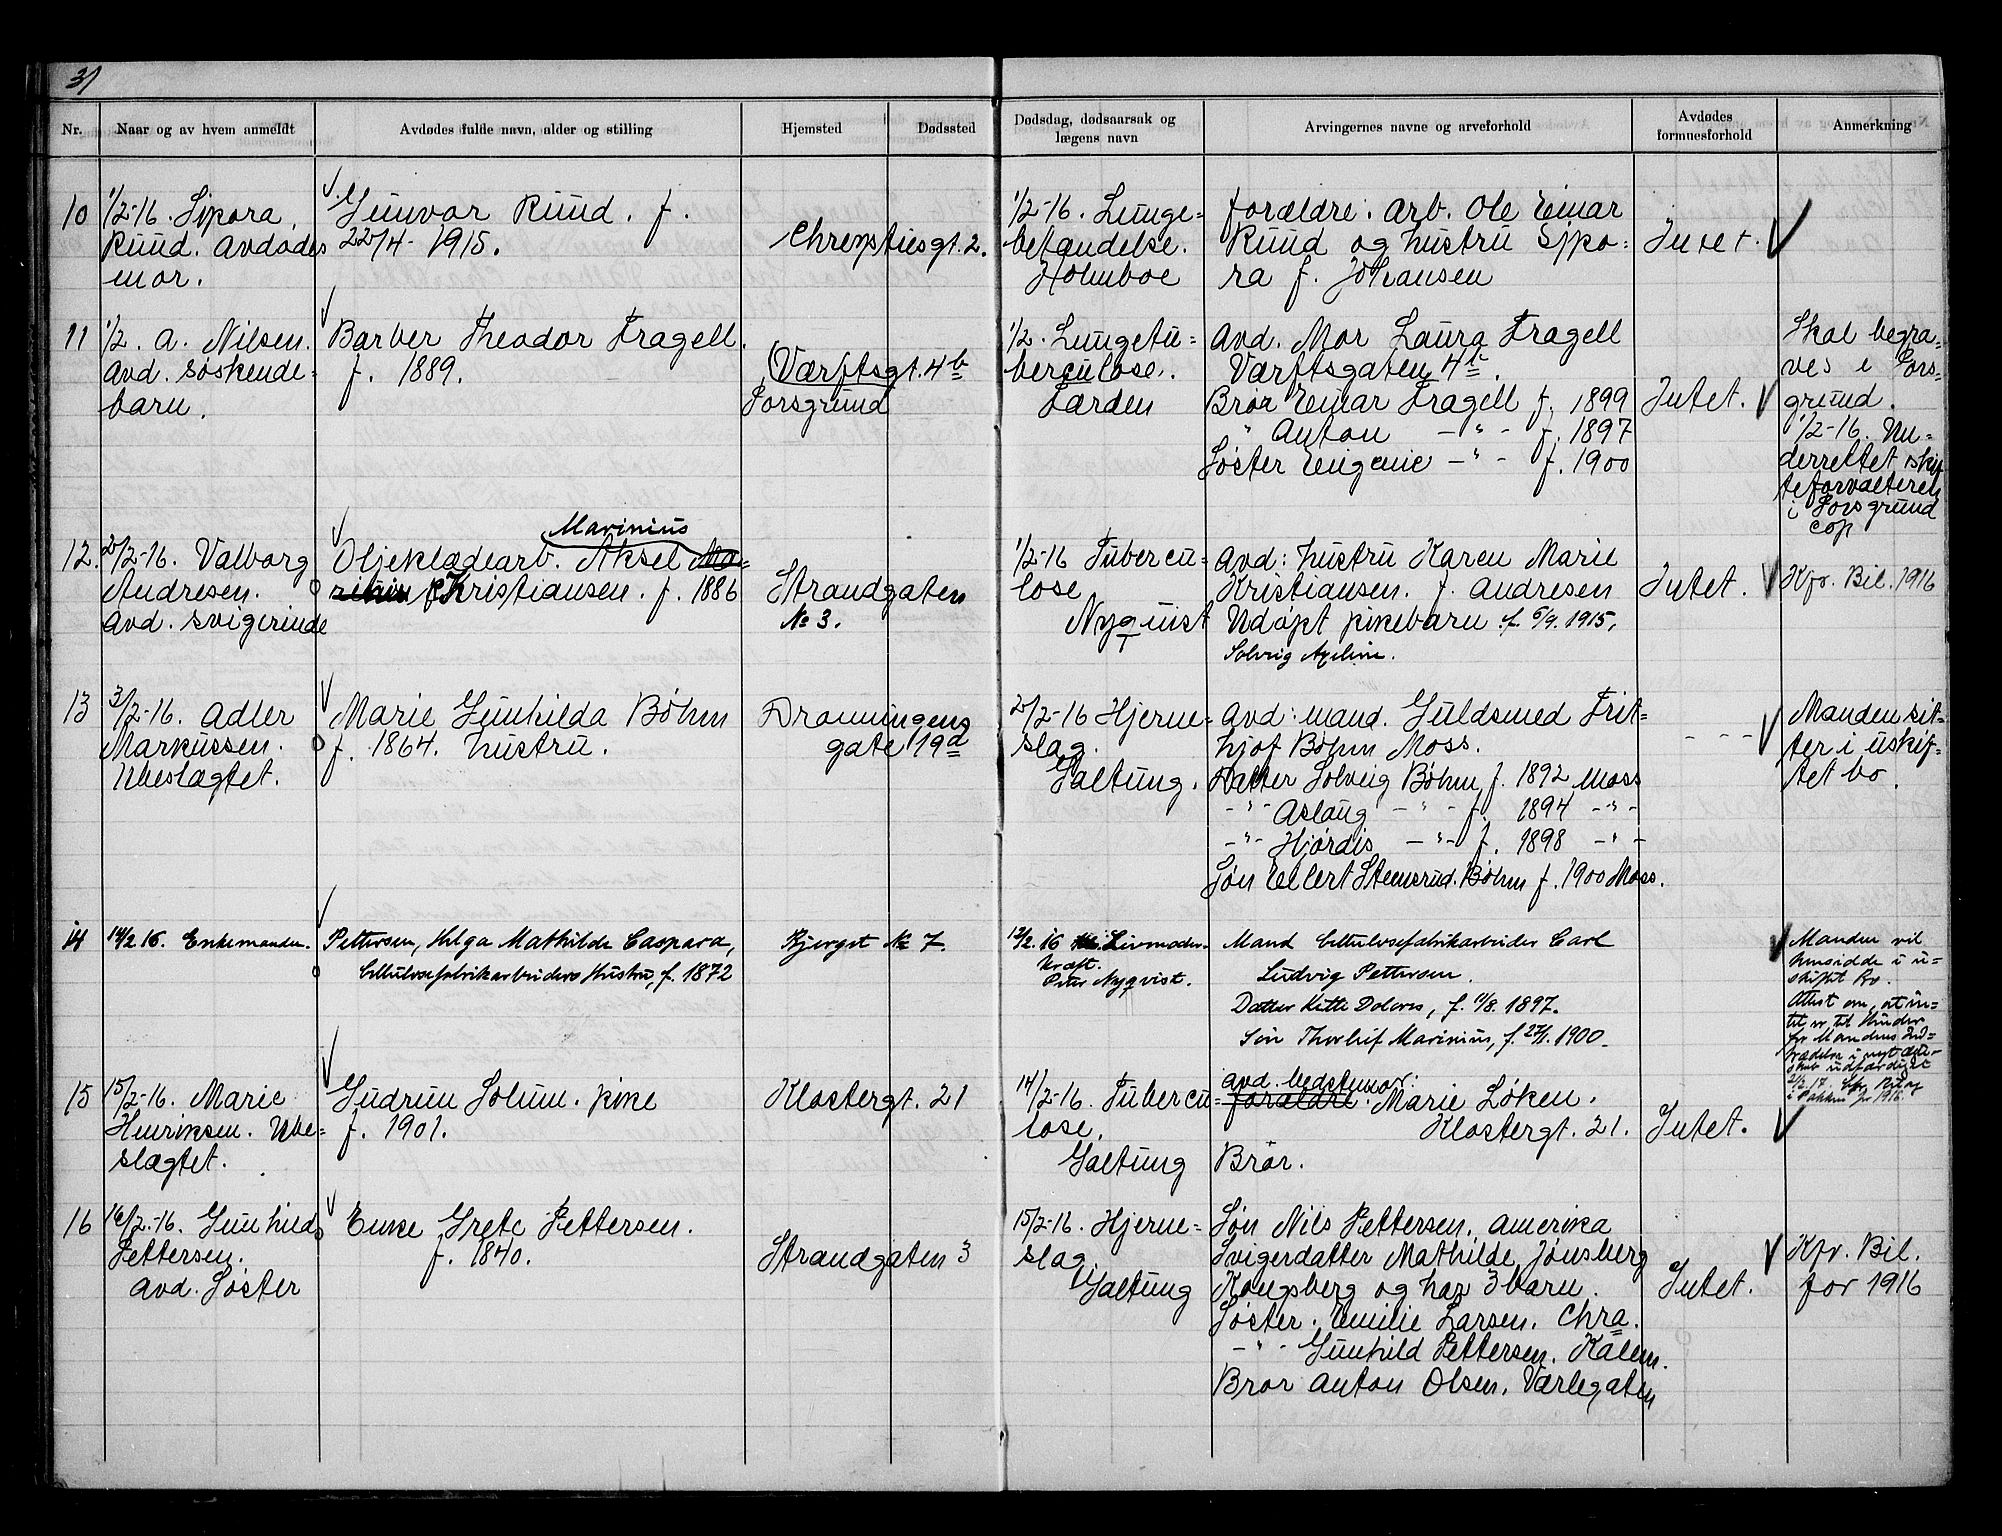 31
Nr.
Naar og av hvem anmeldt
Avdødes fulde navn, alder og stilling
Hjemsted
Dødssted
Dødsdag, dødsaarsak og
lægens navn
Arvingernes navne og arveforhold
Avdødes
formuesforhold
Anmerkning
10
1/2-16. Sipora
Ruud. Avdødes
mor.
Gunvor Ruud. f.
22/4-1915.
Chrenstiesgt. 2.
1/2-16. Lunge-
betændelse.
Holmboe
forældre. Arb. Ole Einar
Ruud og hustru Sipo-
ra f. Johansen
Intet.
11
1/2. A. Nilsen.
Avd. søskende-
barn.
Barber Theodor Fragell.
f. 1889.
(Værftsgt. 4b
Porsgrund
1/2. Lungetu-
berculose.
Farden
Avd. Mor Laura Fragell
Værftsgaten 4b.
Bror Einar Fragell f. 1899
" Anton - " - f. 1897
Søster Eugenie - " - f. 1900
Intet.
Skal begra-
ves i Pors-
grund.
1/2-16. Un-
derrettet skif-
teforvalteren
i Porsgrund
cop
12.
2/2-16. Valborg
Andresen.
Avd. svigerinde
Marinius
Oljeklædearb. Aksel Ma-
rinius Kristiansen. f. 1886
Strandgaten
No 3.
1/2-16 Tubercu-
lose
Nyquist
Avd: hustru Karen Marie
Kristiansen. f. Andresen
Udøpt pikebarn f. 6/9. 1915,
Solveig Axeline.
Intet.
Kfr. Bil. 1916
13
3/2-16. Adler
Markussen.
Ubeslægtet.
Marie Gunhilda Bøhm
f. 1864. hustru.
Dronningens
gate 19d
2/2-16 Hjerne-
slag.
Galtung.
Avd: mand. Guldsmed Frit-
hjof Bøhm Moss.
Datter Solveig Bøhm f. 1892 Moss
- " - Aslaug - " - f. 1894 - " -
- " - Hjørdis - " - f. 1898 - " -
Søn Eilert Stensrud Bøhm f. 1900 Moss.
- - -
Manden sit-
ter i uskif-
tet bo.
14
14/2 16. Enkemanden.
Pettersen, Helga Mathilde Caspara,
Cellulosefabrikarbeiders Hustru, f. 1872
Bjergst No 7.
13/2. 16 Livmoder-
kræft.
Peter Nyqvist.
Mand Cellulosefabrikarbeider Carl
Ludvig Pettersen.
Datter Kitti Dolores, f. 11/8. 1897.
Søn Thorleif Marinius, f. 27/1. 1900.
Manden vil
hensidde i u-
skiftet Bo.
Attest om, at in-
tet er til Hinder
for Mandens Ind-
trædelse i nyt Ægte-
skab udfærdiget
2/2 17. Cfr. Bilag
i Pakken for 1916.
15
15/2-16. Marie
Henriksen. Ube-
slægtet.
Gudrun Solum. pike
f. 1901.
Klostergt. 21
14/2-16. Tubercu-
lose.
Galtung
avd. bedstemor:
forældre. Marie Løken.
Klostergt. 21.
Bror.
Intet.
16
16/2-16. Gunhild
Pettersen.
Avd. Søster
Enke Grete Pettersen.
f. 1840.
Strandgaten 3
15/2-16. Hjerne-
slag
Galtung
Søn Nils Pettersen. Amerika
Svigerdatter Mathilde Jønsberg
Kongsberg og har 3 barn.
Søster. Emilie Larsen. Chra.
- " - Gunhild Pettersen. Kalun.
Bror Anton Olsen. Værlegaten
Intet.
Kfr. Bil.
for 1916